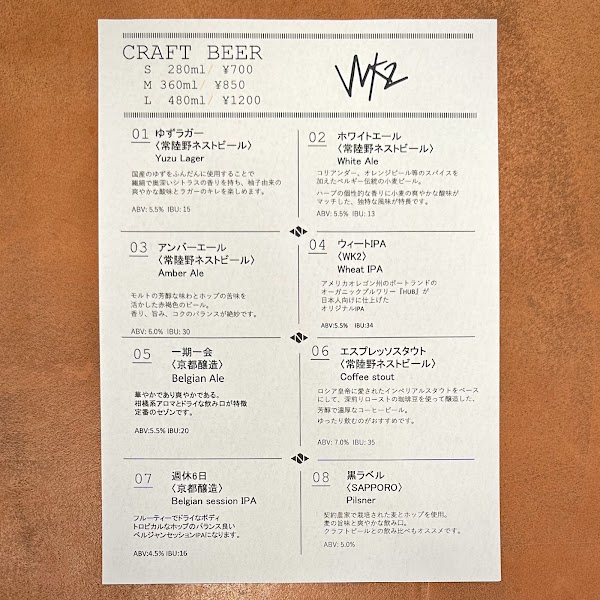 CRAFT BEER
S 280ml/ ¥700
M 360ml/ ¥850
L 480ml/ ¥1200
WK2
01 ゆずラガー
〈常陸野ネストビール〉
Yuzu Lager
国産のゆずをふんだんに使用することで
繊細で奥深いシトラスの香りを持ち、柚子由来の
爽やかな酸味とラガーのキレを楽しめます。
ABV: 5.5% IBU: 15
02 ホワイトエール
〈常陸野ネストビール〉
White Ale
コリアンダー、オレンジピール等のスパイスを
加えたベルギー伝統の小麦ビール。
ハーブの個性的な香りに小麦の爽やかな酸味が
マッチした、独特な風味が特長です。
ABV: 5.5% IBU: 13
N
03 アンバーエール
〈常陸野ネストビール〉
Amber Ale
モルトの芳醇な味わとホップの苦味を
活かした赤褐色のビール。
香り、旨み、コクのバランスが絶妙です。
ABV: 6.0% IBU: 30
04 ウィートIPA
〈WK2〉
Wheat IPA
アメリカオレゴン州のポートランドの
オーガニックブルワリー『HUB』が
日本人向けに仕上げた
オリジナルIPA
ABV:5.5% IBU:34
N
05 一期一会
〈京都醸造〉
Belgian Ale
華やかであり爽やかである。
柑橘系アロマとドライな飲み口が特徴
定番のセゾンです。
ABV:5.5% IBU:20
06 エスプレッソスタウト
〈常陸野ネストビール〉
Coffee stout
ロシア皇帝に愛されたインペリアルスタウトをベース
にして、深煎りローストの珈琲豆を使って醸造した、
芳醇で濃厚なコーヒービール。
ゆったり飲むのがおすすめです。
ABV: 7.0% IBU: 35
N
07 週休6日
〈京都醸造〉
Belgian session IPA
フルーティーでドライなボディ
トロピカルなホップのバランス良い
ベルジャンセッションIPAになります。
ABV:4.5% IBU:16
08 黒ラベル
〈SAPPORO〉
Pilsner
契約農家で栽培された麦とホップを使用。
麦の旨味と爽やかな飲み口。
クラフトビールとの飲み比べもオススメです。
ABV: 5.0%